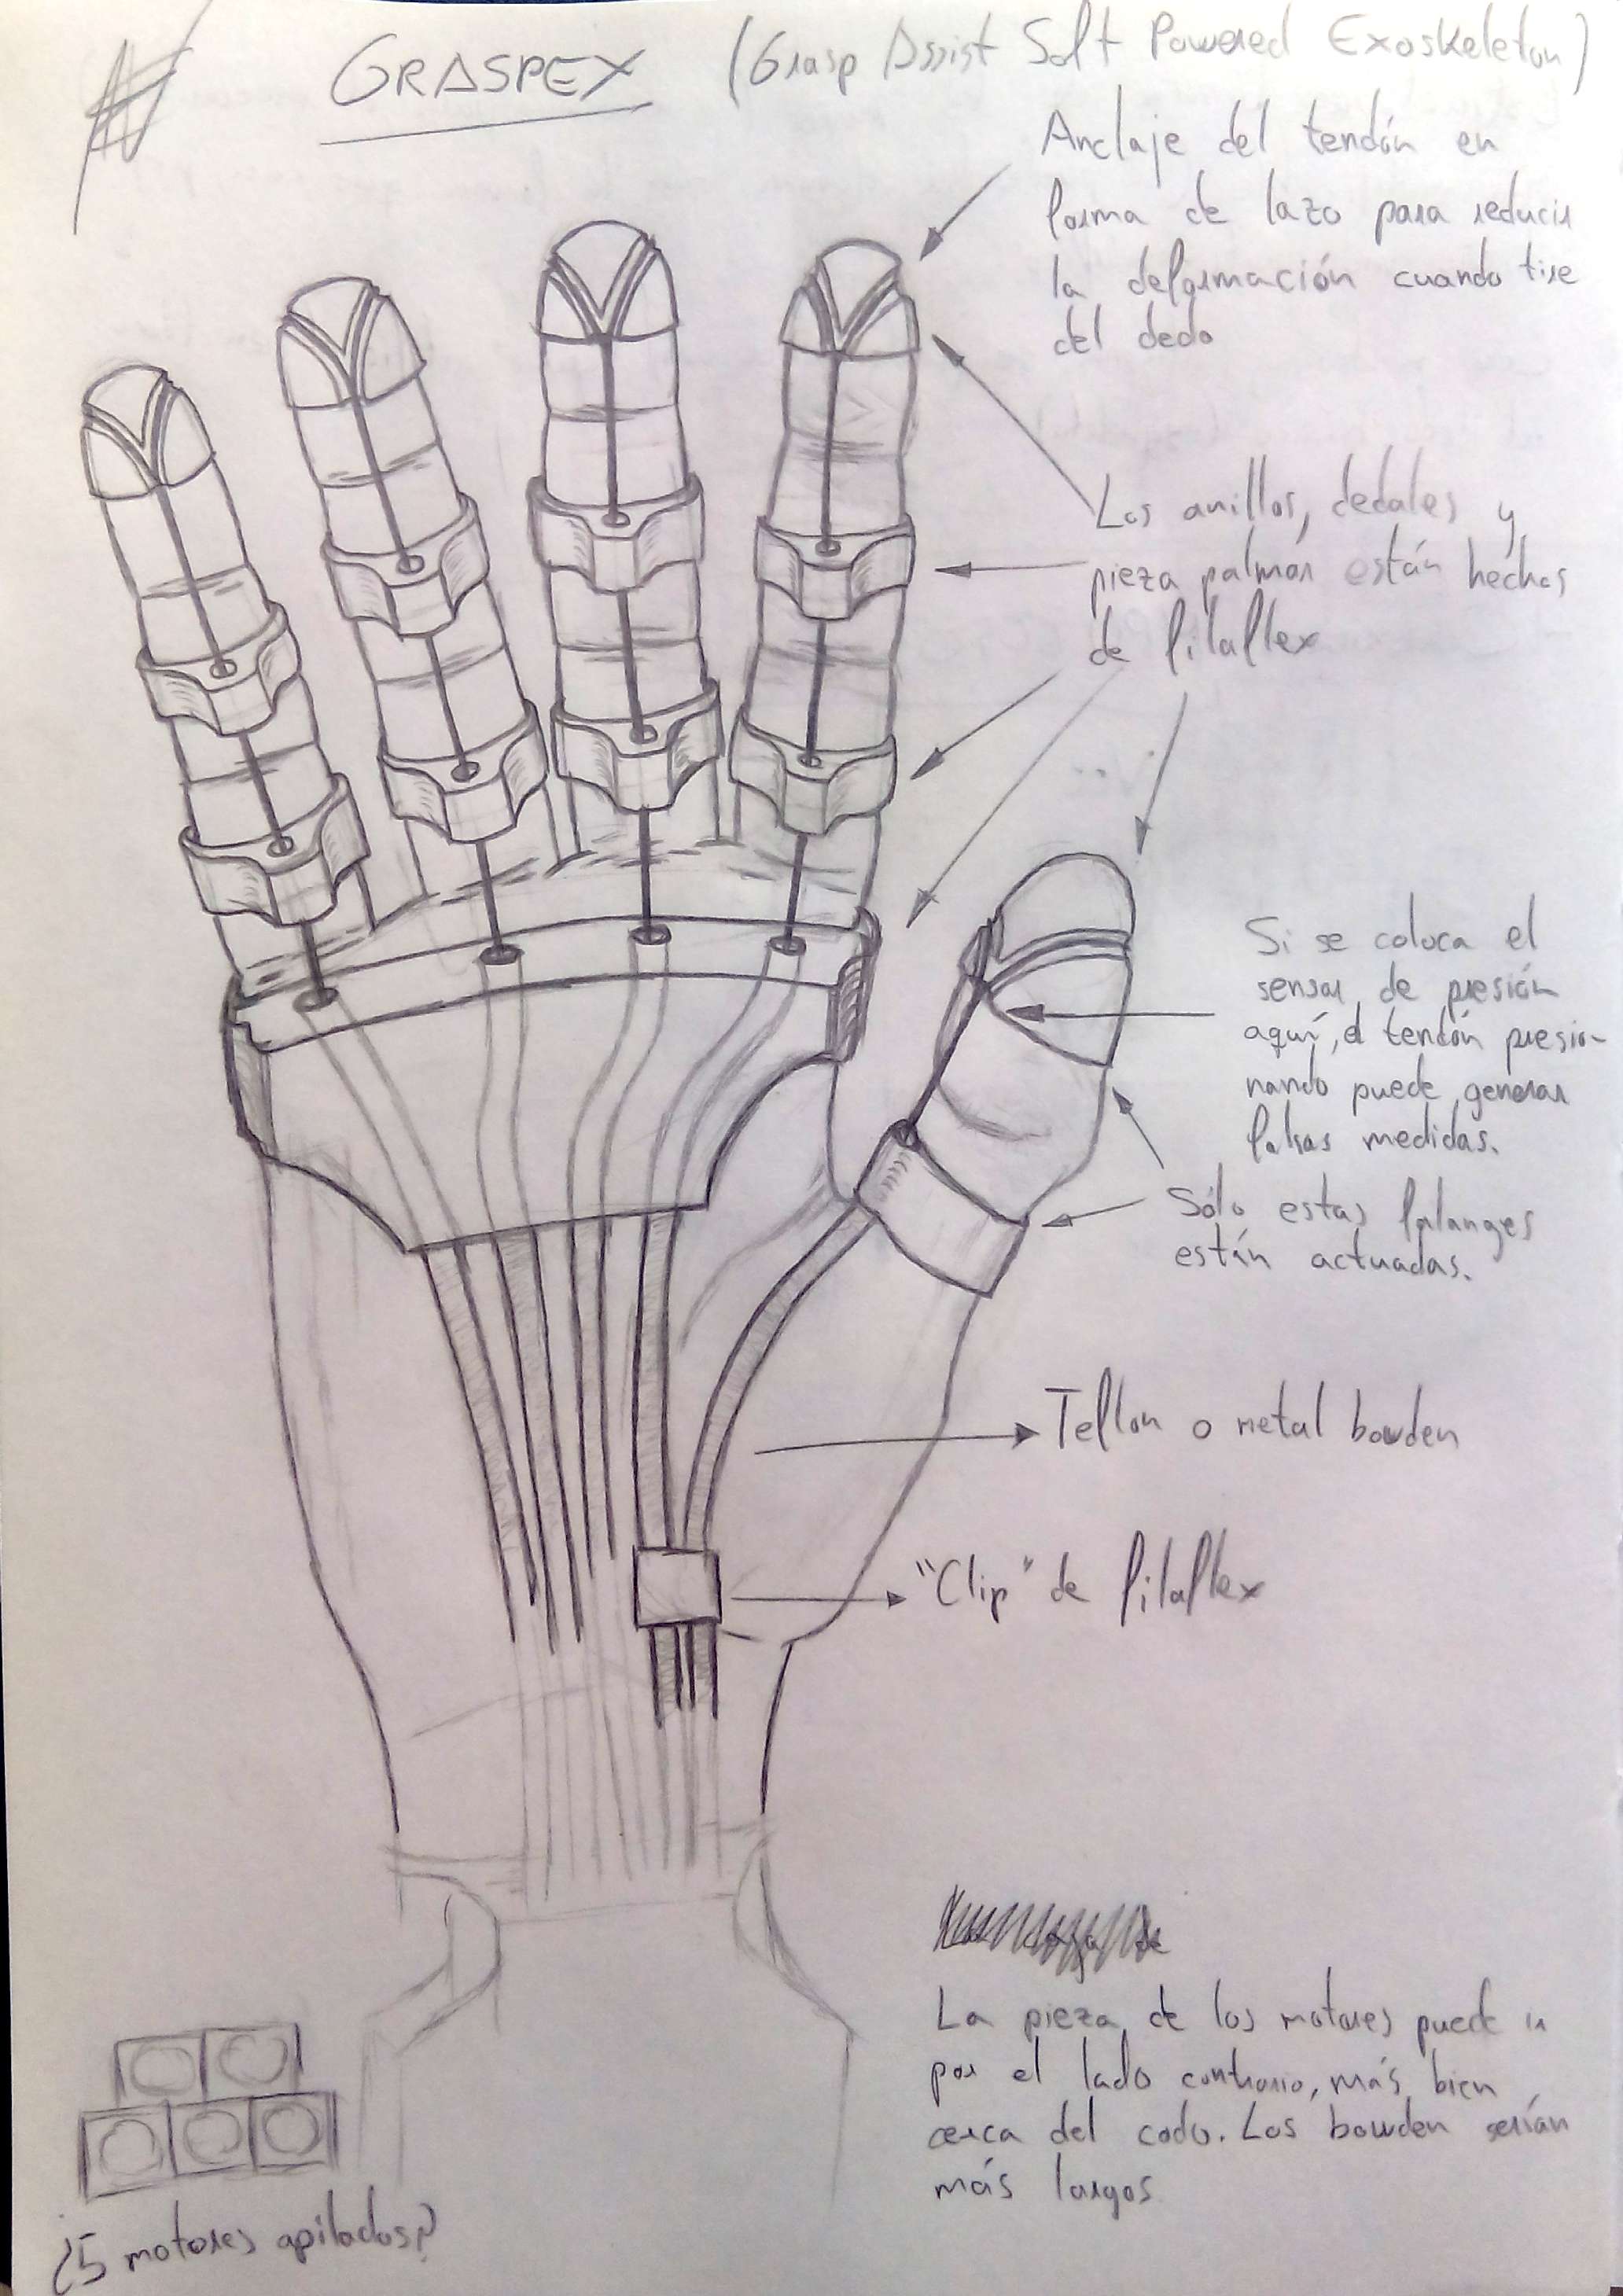 GRASPEX (Grasp Assist Soft Powered Exoskeleton)
Anclaje del tendón en
forma de lazo para reducir
la deformación cuando tire
del dedo
Los anillos, dedales y
pieza palmar están hechos
de filaflex
Si se coloca el
sensor de presión
aquí, el tendón presio-
nando puede generar
falsas medidas.
Sólo estas falanges
están actuadas.
Teflon o metal bowden
"Clip" de filaflex
La pieza de los motores puede ir
por el lado contrario, más bien
cerca del codo. Los bowden serían
más largos
¿5 motores apilados?